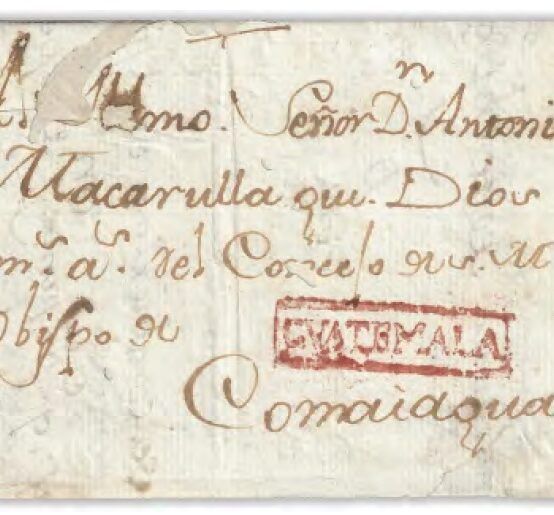 Al Illmo. Señor Dn. Antoni
Macarulla que Dios
ms. as. del Consejo de s. M
Obispo de
GVATEMALA
Comaiagua